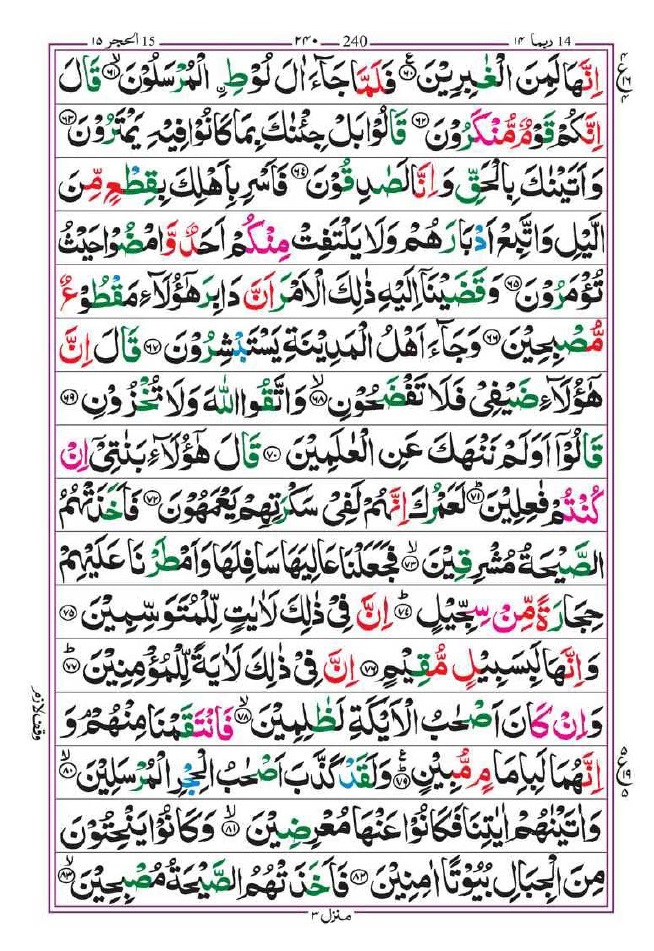 15 الحجر ١٥ 240 ٢٤٠ 14 ربما ١٤
اِنَّهَا لَمِنَ الْغٰبِرِيْنَ ﴿۶۰﴾ فَلَمَّا جَآءَ اٰلَ لُوْطِ ِ۟الْمُرْسَلُوْنَ ﴿۶۱﴾ قَالَ
اِنَّكُمْ قَوْمٌ مُّنْكَرُوْنَ ﴿۶۲﴾ قَالُوْا بَلْ جِئْنٰكَ بِمَا كَانُوْا فِيْهِ يَمْتَرُوْنَ ﴿۶۳﴾
وَاَتَيْنٰكَ بِالْحَقِّ وَاِنَّا لَصٰدِقُوْنَ ﴿۶۴﴾ فَاَسْرِ بِاَهْلِكَ بِقِطْعٍ مِّنَ
الَّيْلِ وَاتَّبِعْ اَدْبَارَهُمْ وَلَا يَلْتَفِتْ مِنْكُمْ اَحَدٌ وَّامْضُوْا حَيْثُ
تُؤْمَرُوْنَ ﴿۶۵﴾ وَقَضَيْنَاۤ اِلَيْهِ ذٰلِكَ الْاَمْرَ اَنَّ دَابِرَ هٰۤؤُلَآءِ مَقْطُوْعٌ
مُّصْبِحِيْنَ ﴿۶۶﴾ وَجَآءَ اَهْلُ الْمَدِيْنَةِ يَسْتَبْشِرُوْنَ ﴿۶۷﴾ قَالَ اِنَّ
هٰۤؤُلَآءِ ضَيْفِيْ فَلَا تَفْضَحُوْنِ ﴿۶۸﴾ وَاتَّقُوا اللّٰهَ وَلَا تُخْزُوْنِ ﴿۶۹﴾
قَالُوْۤا اَوَلَمْ نَنْهَكَ عَنِ الْعٰلَمِيْنَ ﴿۷۰﴾ قَالَ هٰۤؤُلَآءِ بَنٰتِيْۤ اِنْ
كُنْتُمْ فٰعِلِيْنَ ﴿۷۱﴾ لَعَمْرُكَ اِنَّهُمْ لَفِيْ سَكْرَتِهِمْ يَعْمَهُوْنَ ﴿۷۲﴾ فَاَخَذَتْهُمُ
الصَّيْحَةُ مُشْرِقِيْنَ ﴿۷۳﴾ فَجَعَلْنَا عَالِيَهَا سَافِلَهَا وَاَمْطَرْنَا عَلَيْهِمْ
حِجَارَةً مِّنْ سِجِّيْلٍ ﴿۷۴﴾ اِنَّ فِيْ ذٰلِكَ لَاٰيٰتٍ لِّلْمُتَوَسِّمِيْنَ ﴿۷۵﴾
وَاِنَّهَا لَبِسَبِيْلٍ مُّقِيْمٍ ﴿۷۶﴾ اِنَّ فِيْ ذٰلِكَ لَاٰيَةً لِّلْمُؤْمِنِيْنَ ﴿۷۷﴾
وَاِنْ كَانَ اَصْحٰبُ الْاَيْكَةِ لَظٰلِمِيْنَ ﴿۷۸﴾ فَانْتَقَمْنَا مِنْهُمْ وَ
اِنَّهُمَا لَبِاِمَامٍ مُّبِيْنٍ ﴿۷۹﴾ وَلَقَدْ كَذَّبَ اَصْحٰبُ الْحِجْرِ الْمُرْسَلِيْنَ ﴿۸۰﴾
وَاٰتَيْنٰهُمْ اٰيٰتِنَا فَكَانُوْا عَنْهَا مُعْرِضِيْنَ ﴿۸۱﴾ وَكَانُوْا يَنْحِتُوْنَ
مِنَ الْجِبَالِ بُيُوْتًا اٰمِنِيْنَ ﴿۸۲﴾ فَاَخَذَتْهُمُ الصَّيْحَةُ مُصْبِحِيْنَ ﴿۸۳﴾
منزل ٣
ع ١٦ ٤ ٤
وقف لازم
ع ١٩ ٥ ٥